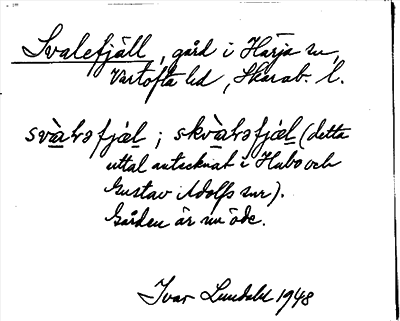 Svalefjäll, gård i Härja sn,
Vartofta hd, Skarab. l.
svàləfjæl; skvàləfjæl (detta
uttal antecknat i Habo och
Gustav Adolfs snr).
Gården är nu öde.
Ivar Lundahl 1948